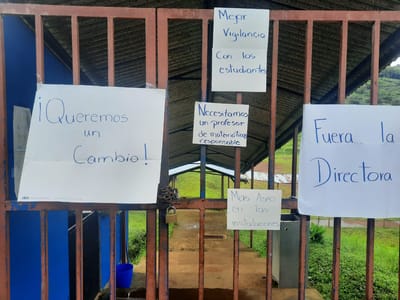 Mejor
Vigilancia
Con los
estudiantes
¡Queremos
un
Cambio!
Necesitamos
un profesor
de matemáticas
responsable
Fuera la
Directora
Mas Aseo
en las
instalaciones